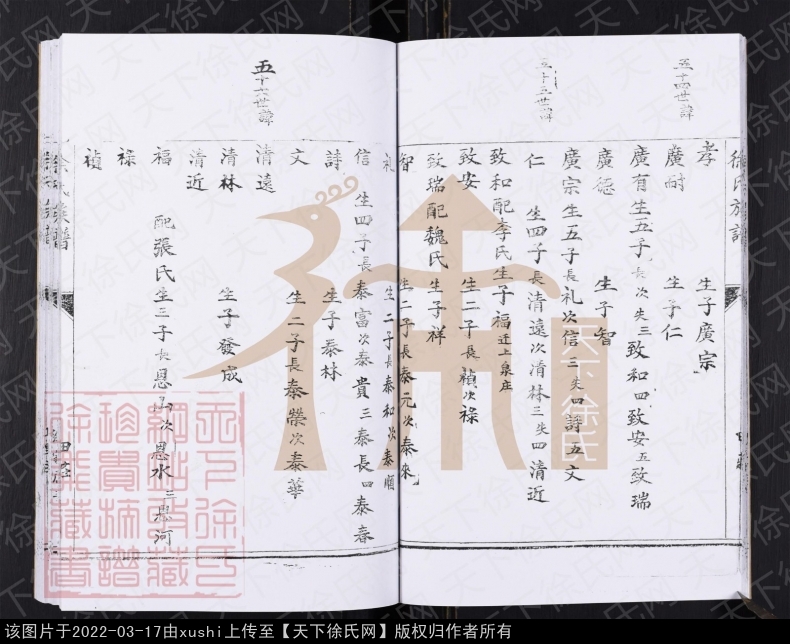 徐氏族譜
五十四世諱
孝 生子廣宗
廣耐 生子仁
廣有生五子長次失三致和四致安五致瑞
廣德 生子智
五十五世諱
廣宗生五子長礼次信三失四詩五文
仁 生四子長清遠次清林三失四清近
致和配李氏生子福迁上泉庄
致安 生二子長禎次祿
致瑞配魏氏生子祥
智 生二子長泰元次泰來
礼 生二子長泰和次泰順
信 生四子長泰富次泰貴三泰長四泰春
詩 生子泰林
文 生二子長泰榮次泰華
五十六世諱
清遠
清林 生子發成
清近
福 配張氏生三子長恩山次恩水三恩河
祿
禎
徐氏族譜
天下徐氏
天下徐氏
網站敬藏
珍貴抹譜
徐氏藏書
该图片于2022-03-17由xushi上传至【天下徐氏网】版权归作者所有